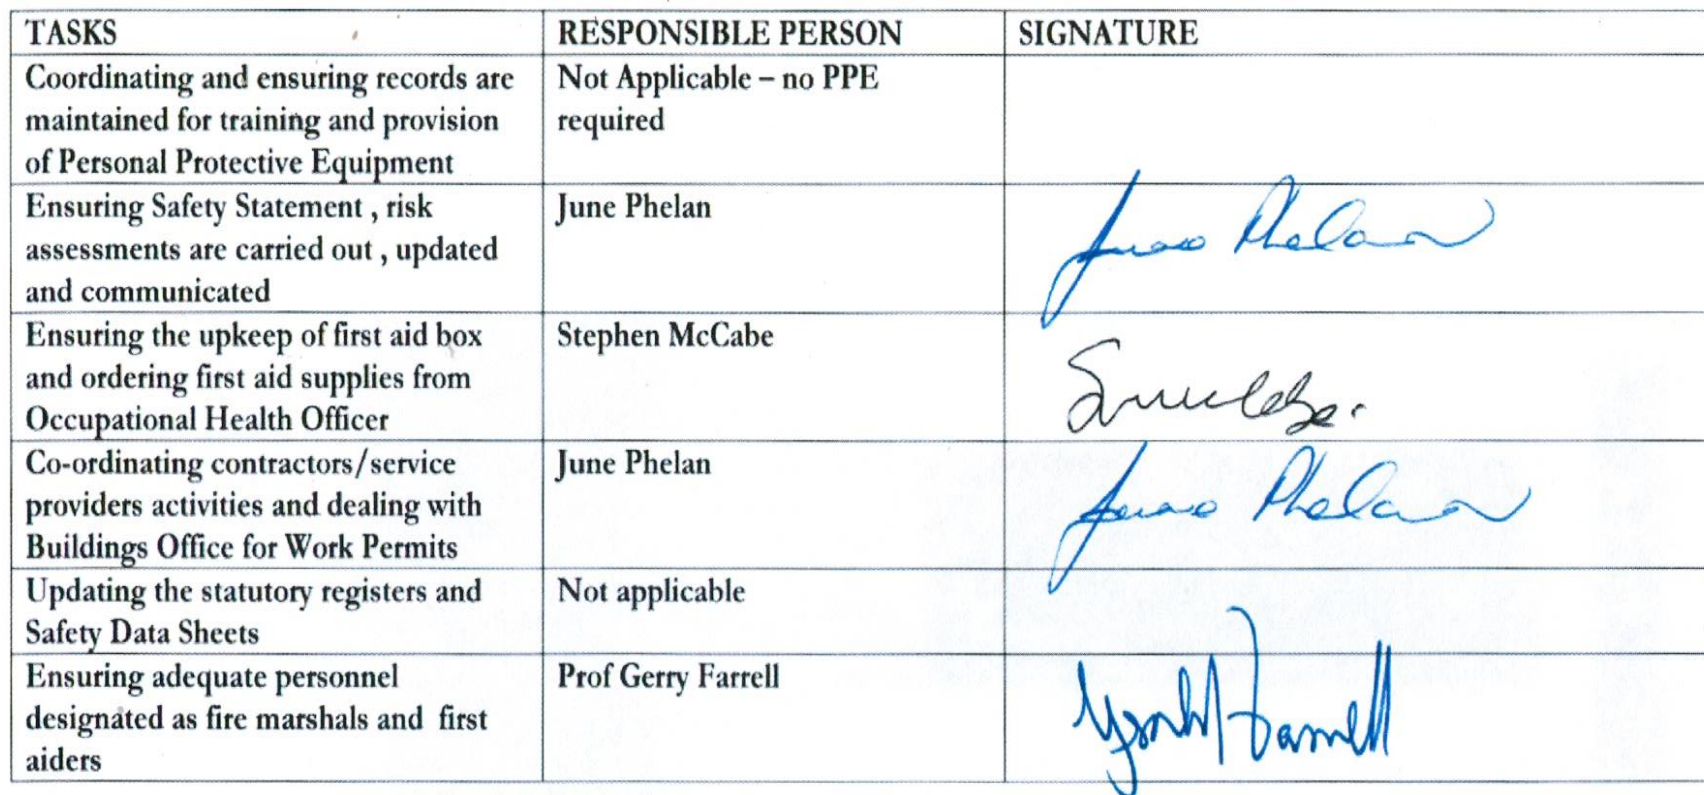 TASKS RESPONSIBLE PERSON SIGNATURE
Coordinating and ensuring records are
maintained for training and provision
of Personal Protective Equipment
Not Applicable – no PPE
required
Ensuring Safety Statement , risk
assessments are carried out , updated
and communicated
June Phelan
June Phelan
Ensuring the upkeep of first aid box
and ordering first aid supplies from
Occupational Health Officer
Stephen McCabe
SMcCabe.
Co-ordinating contractors/service
providers activities and dealing with
Buildings Office for Work Permits
June Phelan
June Phelan
Updating the statutory registers and
Safety Data Sheets
Not applicable
Ensuring adequate personnel
designated as fire marshals and first
aiders
Prof Gerry Farrell
Farrell